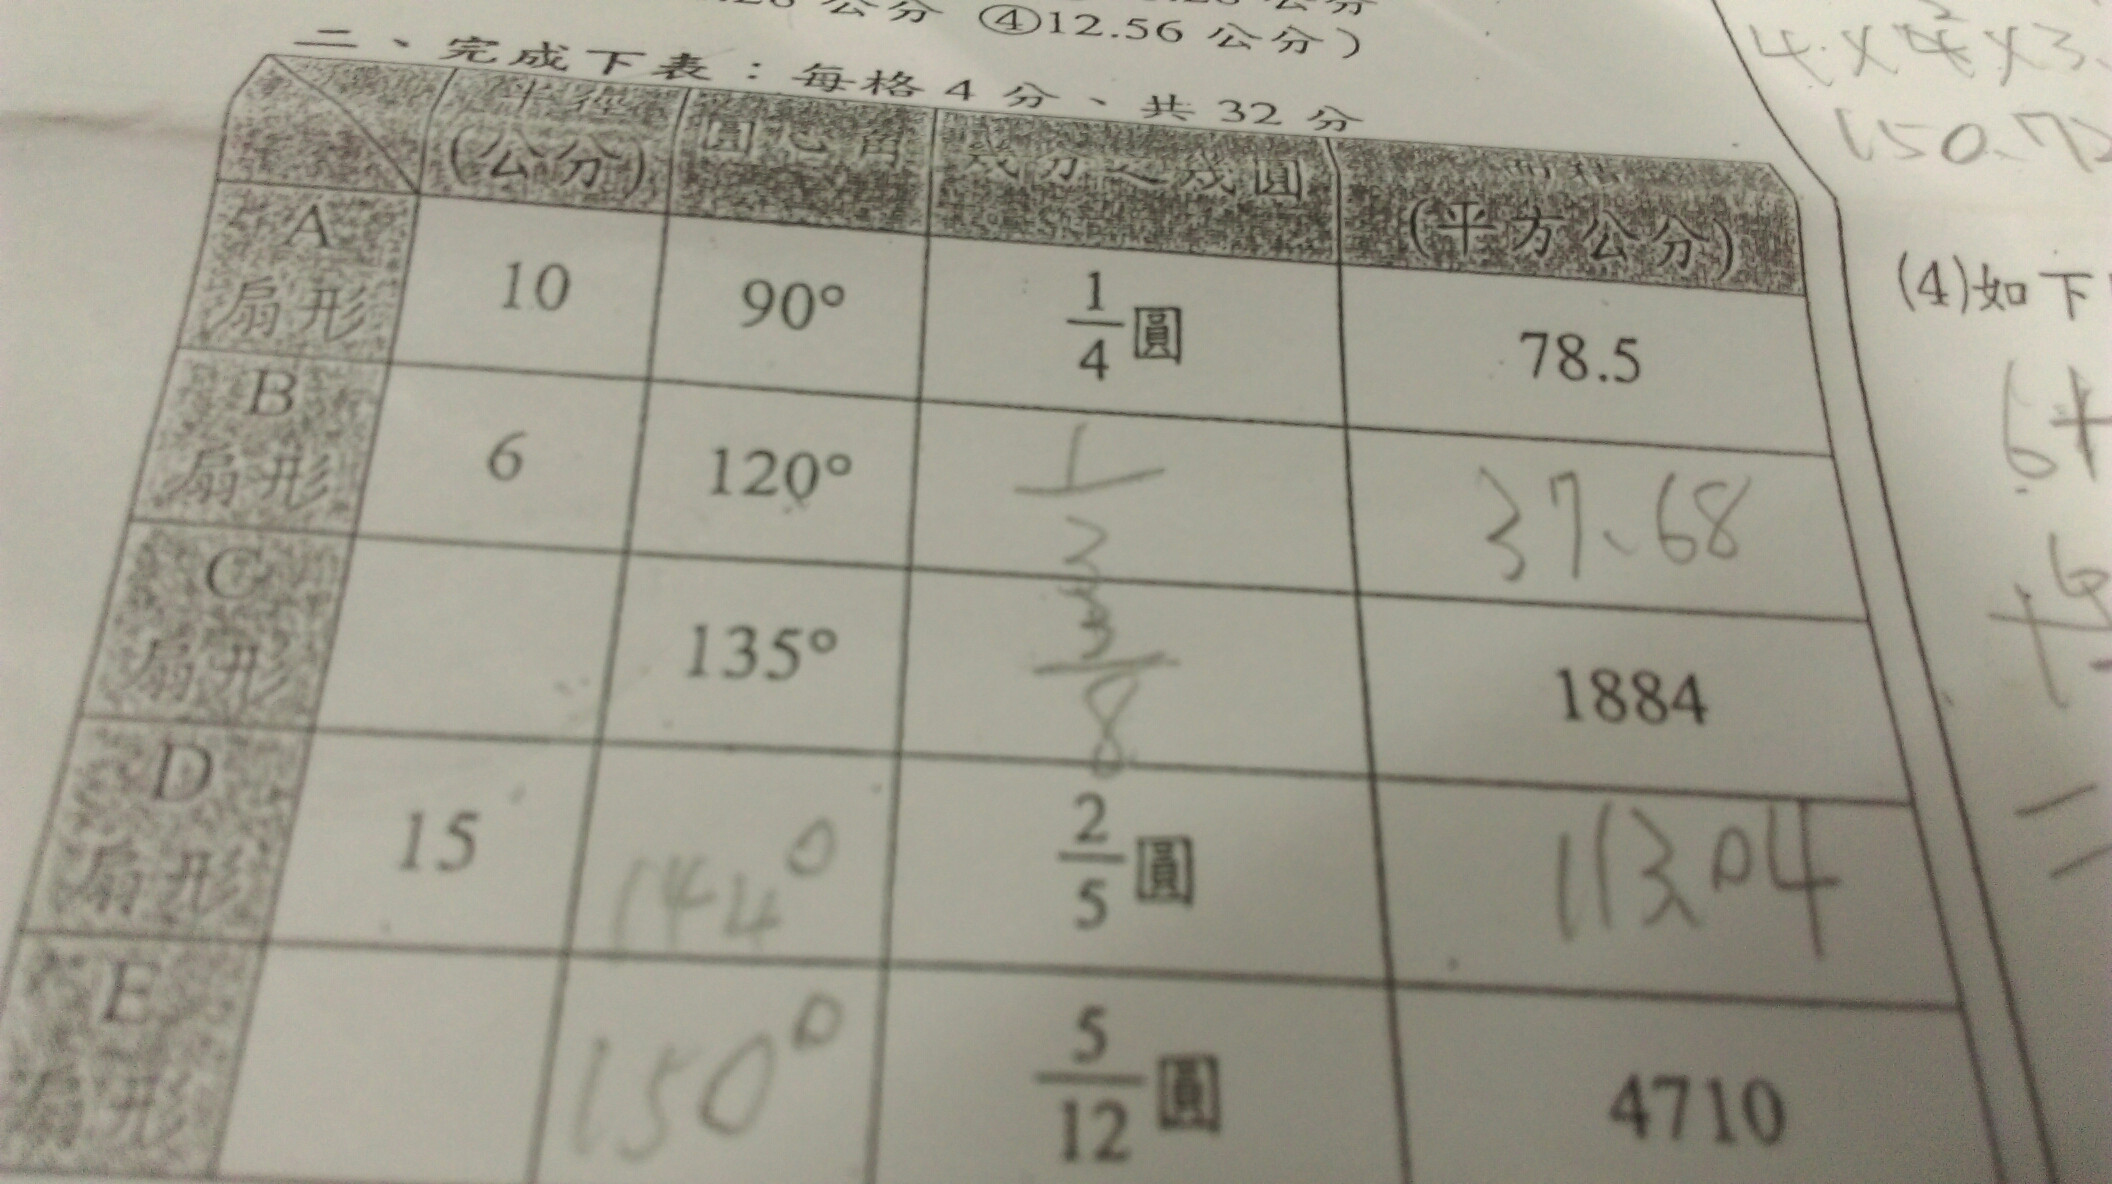 公分 ④12.56 公分)
二、完成下表：每格 4 分、共 32 分
半徑 (公分) 圓心角 幾分之幾圓 面積 (平方公分)
A 扇形 10 90° 1/4 圓 78.5
B 扇形 6 120° 1/3 37.68
C 扇形 135° 3/8 1884
D 扇形 15 144° 2/5 圓 113.04
E 扇形 150° 5/12 圓 4710
(4)如下